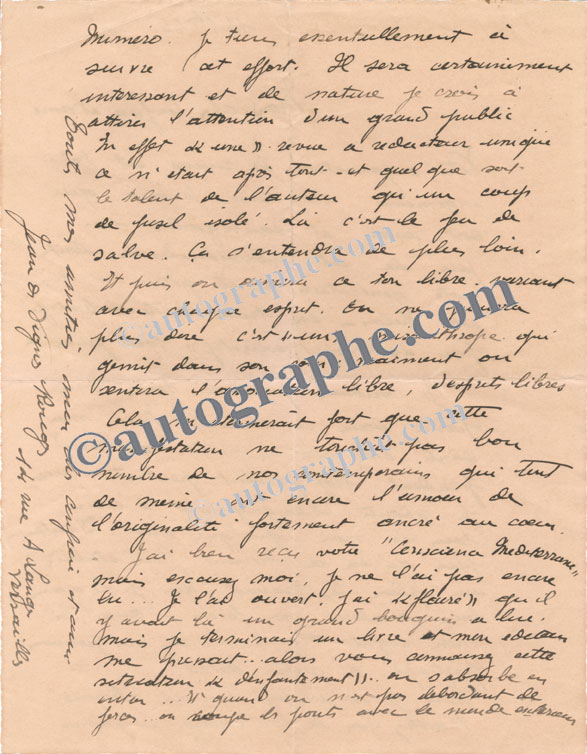 numéro. Je tiens essentiellement à
suivre cet effort. Il sera certainement
intéressant et de nature je crois à
attirer l'attention d'un grand public
En effet « une » revue à rédacteur unique
ce n'était après tout - et quel que soit
le talent de l'auteur qu'un coup
de fusil isolé. Là c'est le feu de
salve. Ça s'entendra de plus loin.
Et puis on ce ton libre variant
avec chaque esprit. On ne pourra
plus dire c'est « un misanthrope qui
gémit dans son vraiment on
sentira l'association libre, d'esprits libres
Cela m'étonnerait fort que cette
manifestation ne touche pas bon
nombre de nos contemporains qui tout
de même ont encore l'amour de
l'originalité fortement ancré au coeur.
J'ai bien reçu votre "Conscience Méditerranée"
mais excusez moi, je ne l'ai pas encore
lu... Je l'ai ouvert. J'ai « flairé » qu'il
y avait là un grand bouquin à lire.
mais je terminais un livre et mon éditeur
me pressait... alors vous connaissez cette
situation « d'enfantement »... on s'absorbe en
... Et quand on n'est pas débordant de
forces... on coupe les ponts avec le monde extérieur
Toutes mes amitiés, mon cher et
Jean des Vignes Rouges
14 rue A Lange
Versailles
©autographe.com
©autographe.com
©autographe.com